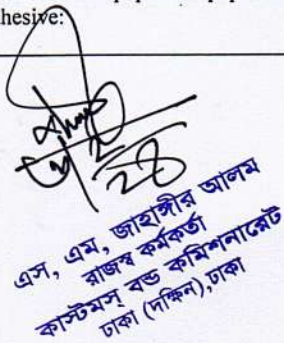 hesive:
এস, এম, জাহাঙ্গীর আলম
রাজস্ব কর্মকর্তা
কাস্টমস্ বন্ড কমিশনারেট
ঢাকা (দক্ষিন),ঢাকা